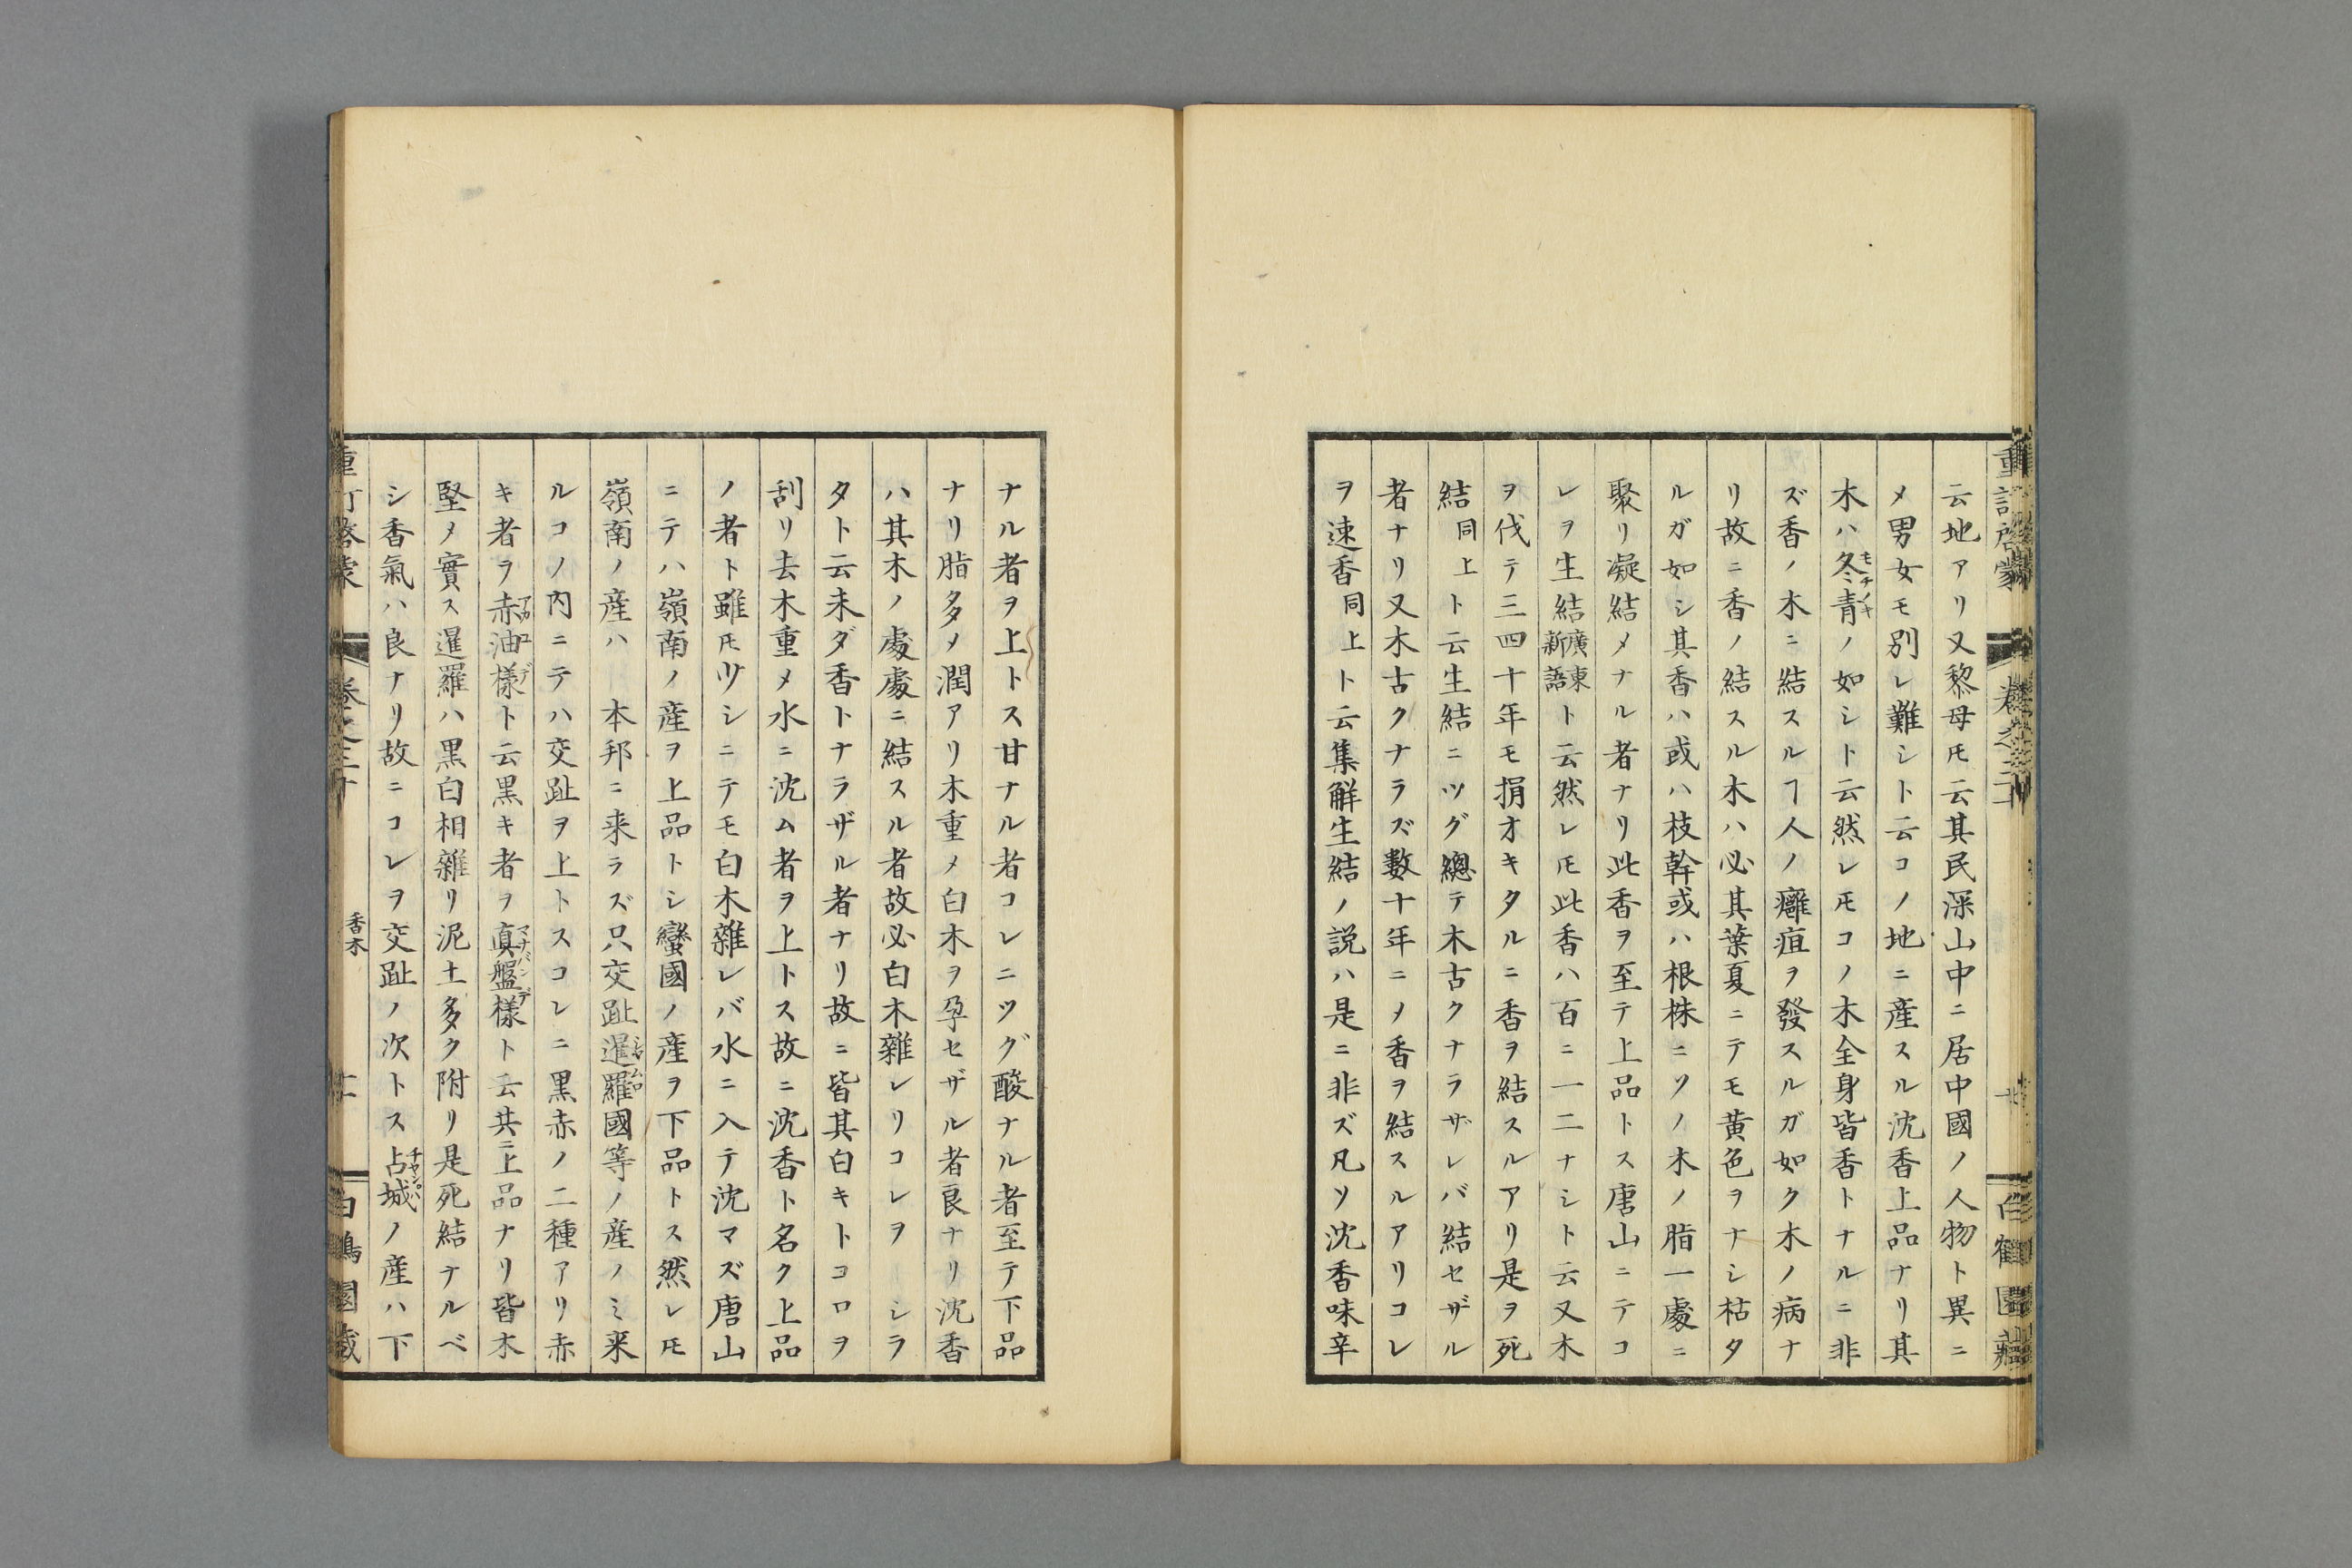 云地アリ又黎母𪜈云其民深山中ニ居中國ノ人物ト異ニ
メ男女モ別レ難シト云コノ地ニ産スル沈香上品ナリ其
木ハ冬青モチノキノ如シト云然レ𪜈コノ木全身皆香トナルニ非
ズ香ノ木ニ結スルヿ人ノ癰疽ヲ發スルガ如ク木ノ病ナ
リ故ニ香ノ結スル木ハ必其葉夏ニテモ黄色ヲナシ枯タ
ルガ如シ其香ハ或ハ枝幹或ハ根株ニソノ木ノ脂一處ニ
聚リ凝結メナル者ナリ此香ヲ至テ上品トス唐山ニテコ
レヲ生結廣東新語ト云然レ𪜈此香ハ百ニ一二ナシト云又木
ヲ伐テ三四十年モ捐オキタルニ香ヲ結スルアリ是ヲ死
結同上ト云生結ニツグ總テ木古クナラザレバ結セザル
者ナリ又木古クナラズ數十年ニメ香ヲ結スルアリコレ
ヲ速香同上ト云集解生結ノ説ハ是ニ非ズ凡ソ沈香味辛
ナル者ヲ上トス甘ナル者コレニツグ酸ナル者至テ下品
ナリ脂多メ潤アリ木重メ白木ヲ孕セザル者良ナリ沈香
ハ其木ノ處處ニ結スル者故必白木雜レリコレヲ シラ
タト云未ダ香トナラザル者ナリ故ニ皆其白キトコロヲ
刮リ去木重メ水ニ沈ム者ヲ上トス故ニ沈香ト名ク上品
ノ者ト雖𪜈少シニテモ白木雜レバ水ニ入テ沈マズ唐山
ニテハ嶺南ノ産ヲ上品トシ蠻國ノ産ヲ下品トス然レ𪜈
嶺南ノ産ハ 本邦ニ来ラズ只交趾暹羅シャムロ國等ノ産ノミ来
ルコノ内ニテハ交趾ヲ上トスコレニ黒赤ノ二種アリ赤
キ者ヲ赤油様アカユデト云黒キ者ヲ眞盤様マナバンデト云共ニ上品ナリ皆木
堅メ實ス暹羅ハ黒白相雜リ泥土多ク附リ是死結ナルベ
シ香氣ハ良ナリ故ニコレヲ交趾ノ次トス占城チャンパノ産ハ下
香木